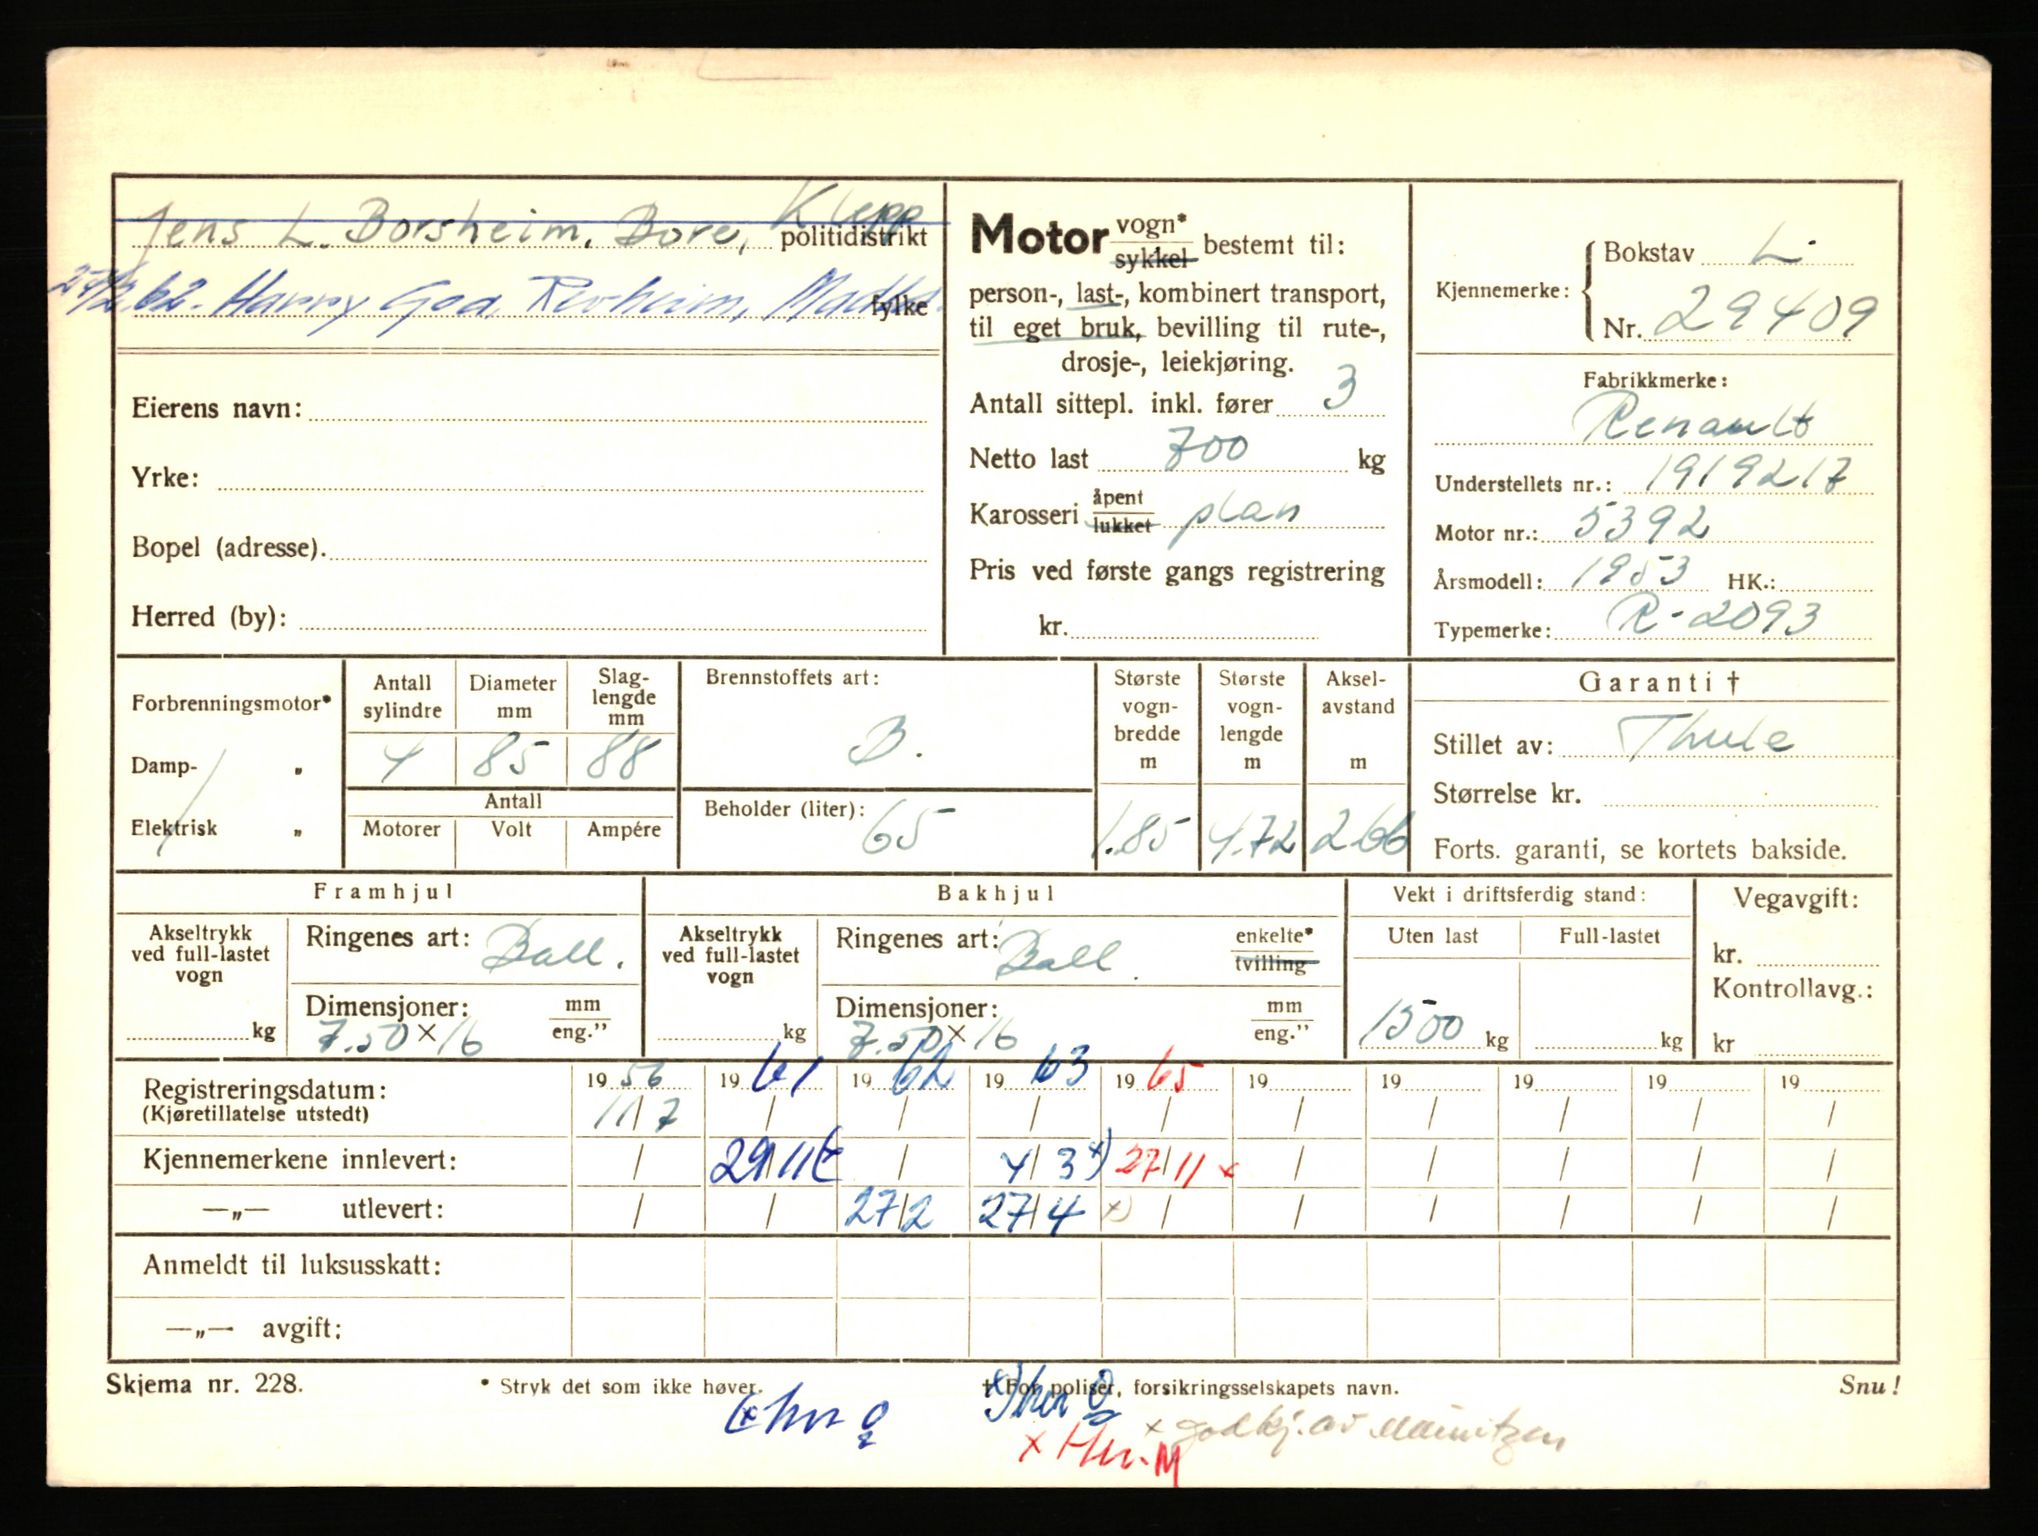 Jens L. Borsheim, Bore, Klepp politidistrikt
27/2 62. Harry God. Revheim, Madla fylke
Eierens navn:
Yrke:
Bopel (adresse).
Herred (by):
Motor vogn* sykkel bestemt til:
person-, last-, kombinert transport,
til eget bruk, bevilling til rute-,
drosje-, leiekjøring.
Antall sittepl. inkl. fører 3
Netto last 700 kg
Karosseri åpent lukket plan
Pris ved første gangs registrering
kr.
Kjennemerke: Bokstav L
Nr. 29409
Fabrikkmerke:
Renault
Understellets nr.: 1919217
Motor nr.: 5392
Årsmodell: 1953 HK.:
Typemerke: R-2093
Forbrenningsmotor*
Damp- „
Elektrisk „
Antall sylindre Diameter mm Slag-lengde mm
4 85 88
Antall
Motorer Volt Ampére
Brennstoffets art:
B.
Beholder (liter): 65
Største vogn-bredde m 1.85
Største vogn-lengde m 4.72
Aksel-avstand m 266
Garanti †
Stillet av: Thule
Størrelse kr.
Forts. garanti, se kortets bakside.
Framhjul
Akseltrykk ved full-lastet vogn kg
Ringenes art: Ball.
Dimensjoner: mm eng.”
7.50 x 16
Bakhjul
Akseltrykk ved full-lastet vogn kg
Ringenes art: Ball. enkelte* tvilling
Dimensjoner: mm eng.”
7.50 x 16
Vekt i driftsferdig stand:
Uten last Full-lastet
1500 kg kg
Vegavgift:
kr.
Kontrollavg.:
kr
Registreringsdatum: 1956 1961 1962 1963 1965 19 19 19 19 19
(Kjøretillatelse utstedt) 11/7 / / / / / / / / /
Kjennemerkene innlevert: / 29/11 x / 4/3 x) 27/11 x / / / / /
—„— utlevert: / / 27/2 27/4 x) / / / / / /
Anmeldt til luksusskatt:
—„— avgift:
Skjema nr. 228. * Stryk det som ikke høver. † For poliser, forsikringsselskapets navn. Snu!
x godkj. av Mauritzen
x Hv. M